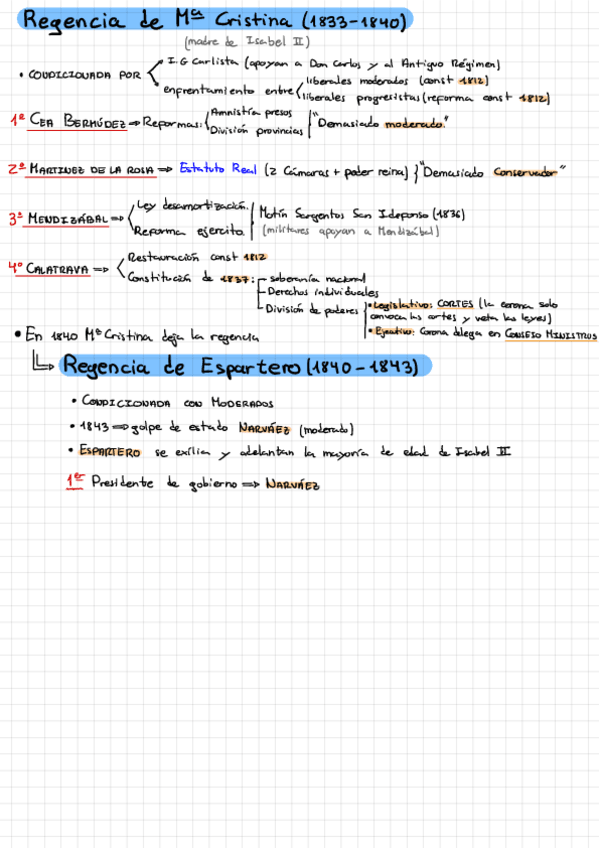 Regencia de Mª Cristina (1833-1840)
(madre de Isabel II)
• CONDICIONADA POR
I.G Carlista (apoyan a Don Carlos y al Antiguo Régimen)
enprentamiento entre
liberales moderados (const 1812)
liberales progresistas (reforma const 1812)
1º CEA BERMÚDEZ ⇒ Reformas:
Amnistía presos
División provincias
"Demasiado moderado."
2º MARTINEZ DE LA ROSA ⇒ Estatuto Real (2 Cámaras + poder reina) } "Demasiado Conservador"
3º MENDIZÁBAL ⇒
Ley desamortización.
Reforma ejercito.
Motín Sargentos San Ildeponso (1836)
(militares apoyan a Mendizábal)
4º CALATRAVA ⇒
Restauración const 1812
Constitución de 1837:
- soberanía nacional
- Derechos individuales
- División de poderes
• Legislativo: CORTES (la corona solo
convoca las cortes y veta las leyes)
• Ejecutivo: Corona delega en CONSEJO MINISTROS
• En 1840 Mª Cristina deja la regencia
↳ Regencia de Espartero (1840-1843)
• CONDICIONADA CON MODERADOS
• 1843 ⇒ golpe de estado NARVÁEZ (moderado)
• ESPARTERO se exilia y adelantan la mayoría de edad de Isabel II
1er Presidente de gobierno ⇒ NARVÁEZ